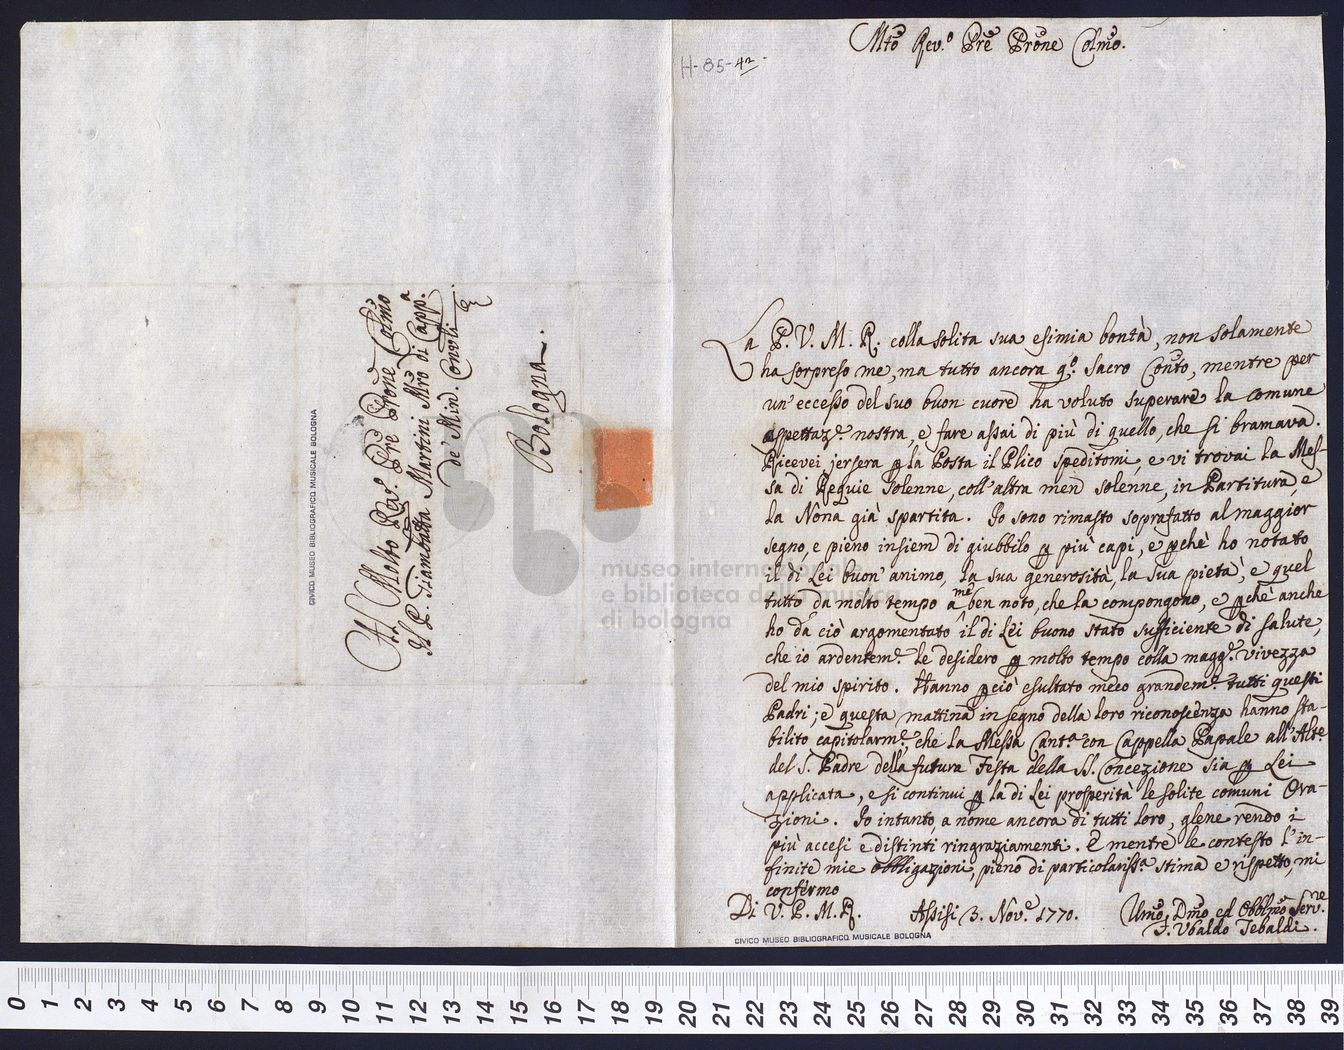 Al Molto Rev. Pre Prone Colmo
Il P. Giambatta Martini Mro di Capp.a
de' Min. Convli
Bologna.
CIVICO MUSEO BIBLIOGRAFICO MUSICALE BOLOGNA
H-85-42
Mto Rev.o Pre Prone Colmo.
La P. V. M. R. colla solita sua esimia bontà, non solamente
ha sorpreso me, ma tutto ancora q.o Sacro Conto, mentre per
un'eccesso del suo buon cuore ha voluto superare la comune
aspettaz.e nostra, e fare assai di più di quello, che si bramava.
Ricevei jersera p la Posta il Plico speditomi, e vi trovai la Mes-
sa di Requie solenne, coll'altra men solenne, in Partitura, e
la Nona già spartita. Io sono rimasto soprafatto al maggior
segno, e pieno insiem di giubbilo p più capi, e pchè ho notato
il di Lei buon'animo, la sua generosità, la sua pietà, e quel
tutto da molto tempo a me ben noto, che la compongono, e pchè anche
ho da ciò argomentato il di Lei buono stato sufficiente di salute,
che io ardentem.e le desidero p molto tempo colla magg.e vivezza
del mio spirito. Hanno pciò esultato meco grandem.e tutti questi
Padri; e questa mattina in segno della loro riconoscenza hanno sta-
bilito capitolarm.e che la Messa Cant.a con Cappella Papale all'Alt.e
del S. Padre della futura Festa della SS. Concezione sia p Lei
applicata, e si continui p la di Lei prosperità le solite comuni Ora-
zioni. Io intanto, a nome ancora di tutti loro, glene rendo i
più accesi e distinti ringraziamenti. E mentre le contesto l'in-
finite mie obbligazioni, pieno di particolariss.a stima e rispetto, mi
confermo
Di V. P. M. R. Assisi 3. Nov.e 1770. Umo, Dmo ed Obblmo Serv.re
F. Ubaldo Tebaldi.
CIVICO MUSEO BIBLIOGRAFICO MUSICALE BOLOGNA
museo internazionale
e biblioteca della musica
di bologna
0 1 2 3 4 5 6 7 8 9 10 11 12 13 14 15 16 17 18 19 20 21 22 23 24 25 26 27 28 29 30 31 32 33 34 35 36 37 38 39